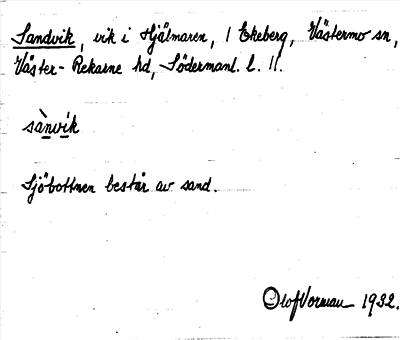 Sandvik, vik i Hjälmaren, 1 Ekeberg, Västermo sn,
Väster-Rekarne hd, Södermanl. l. 11.
sànvik
Sjöbottnen består av sand.
Olof Vorman 1932.